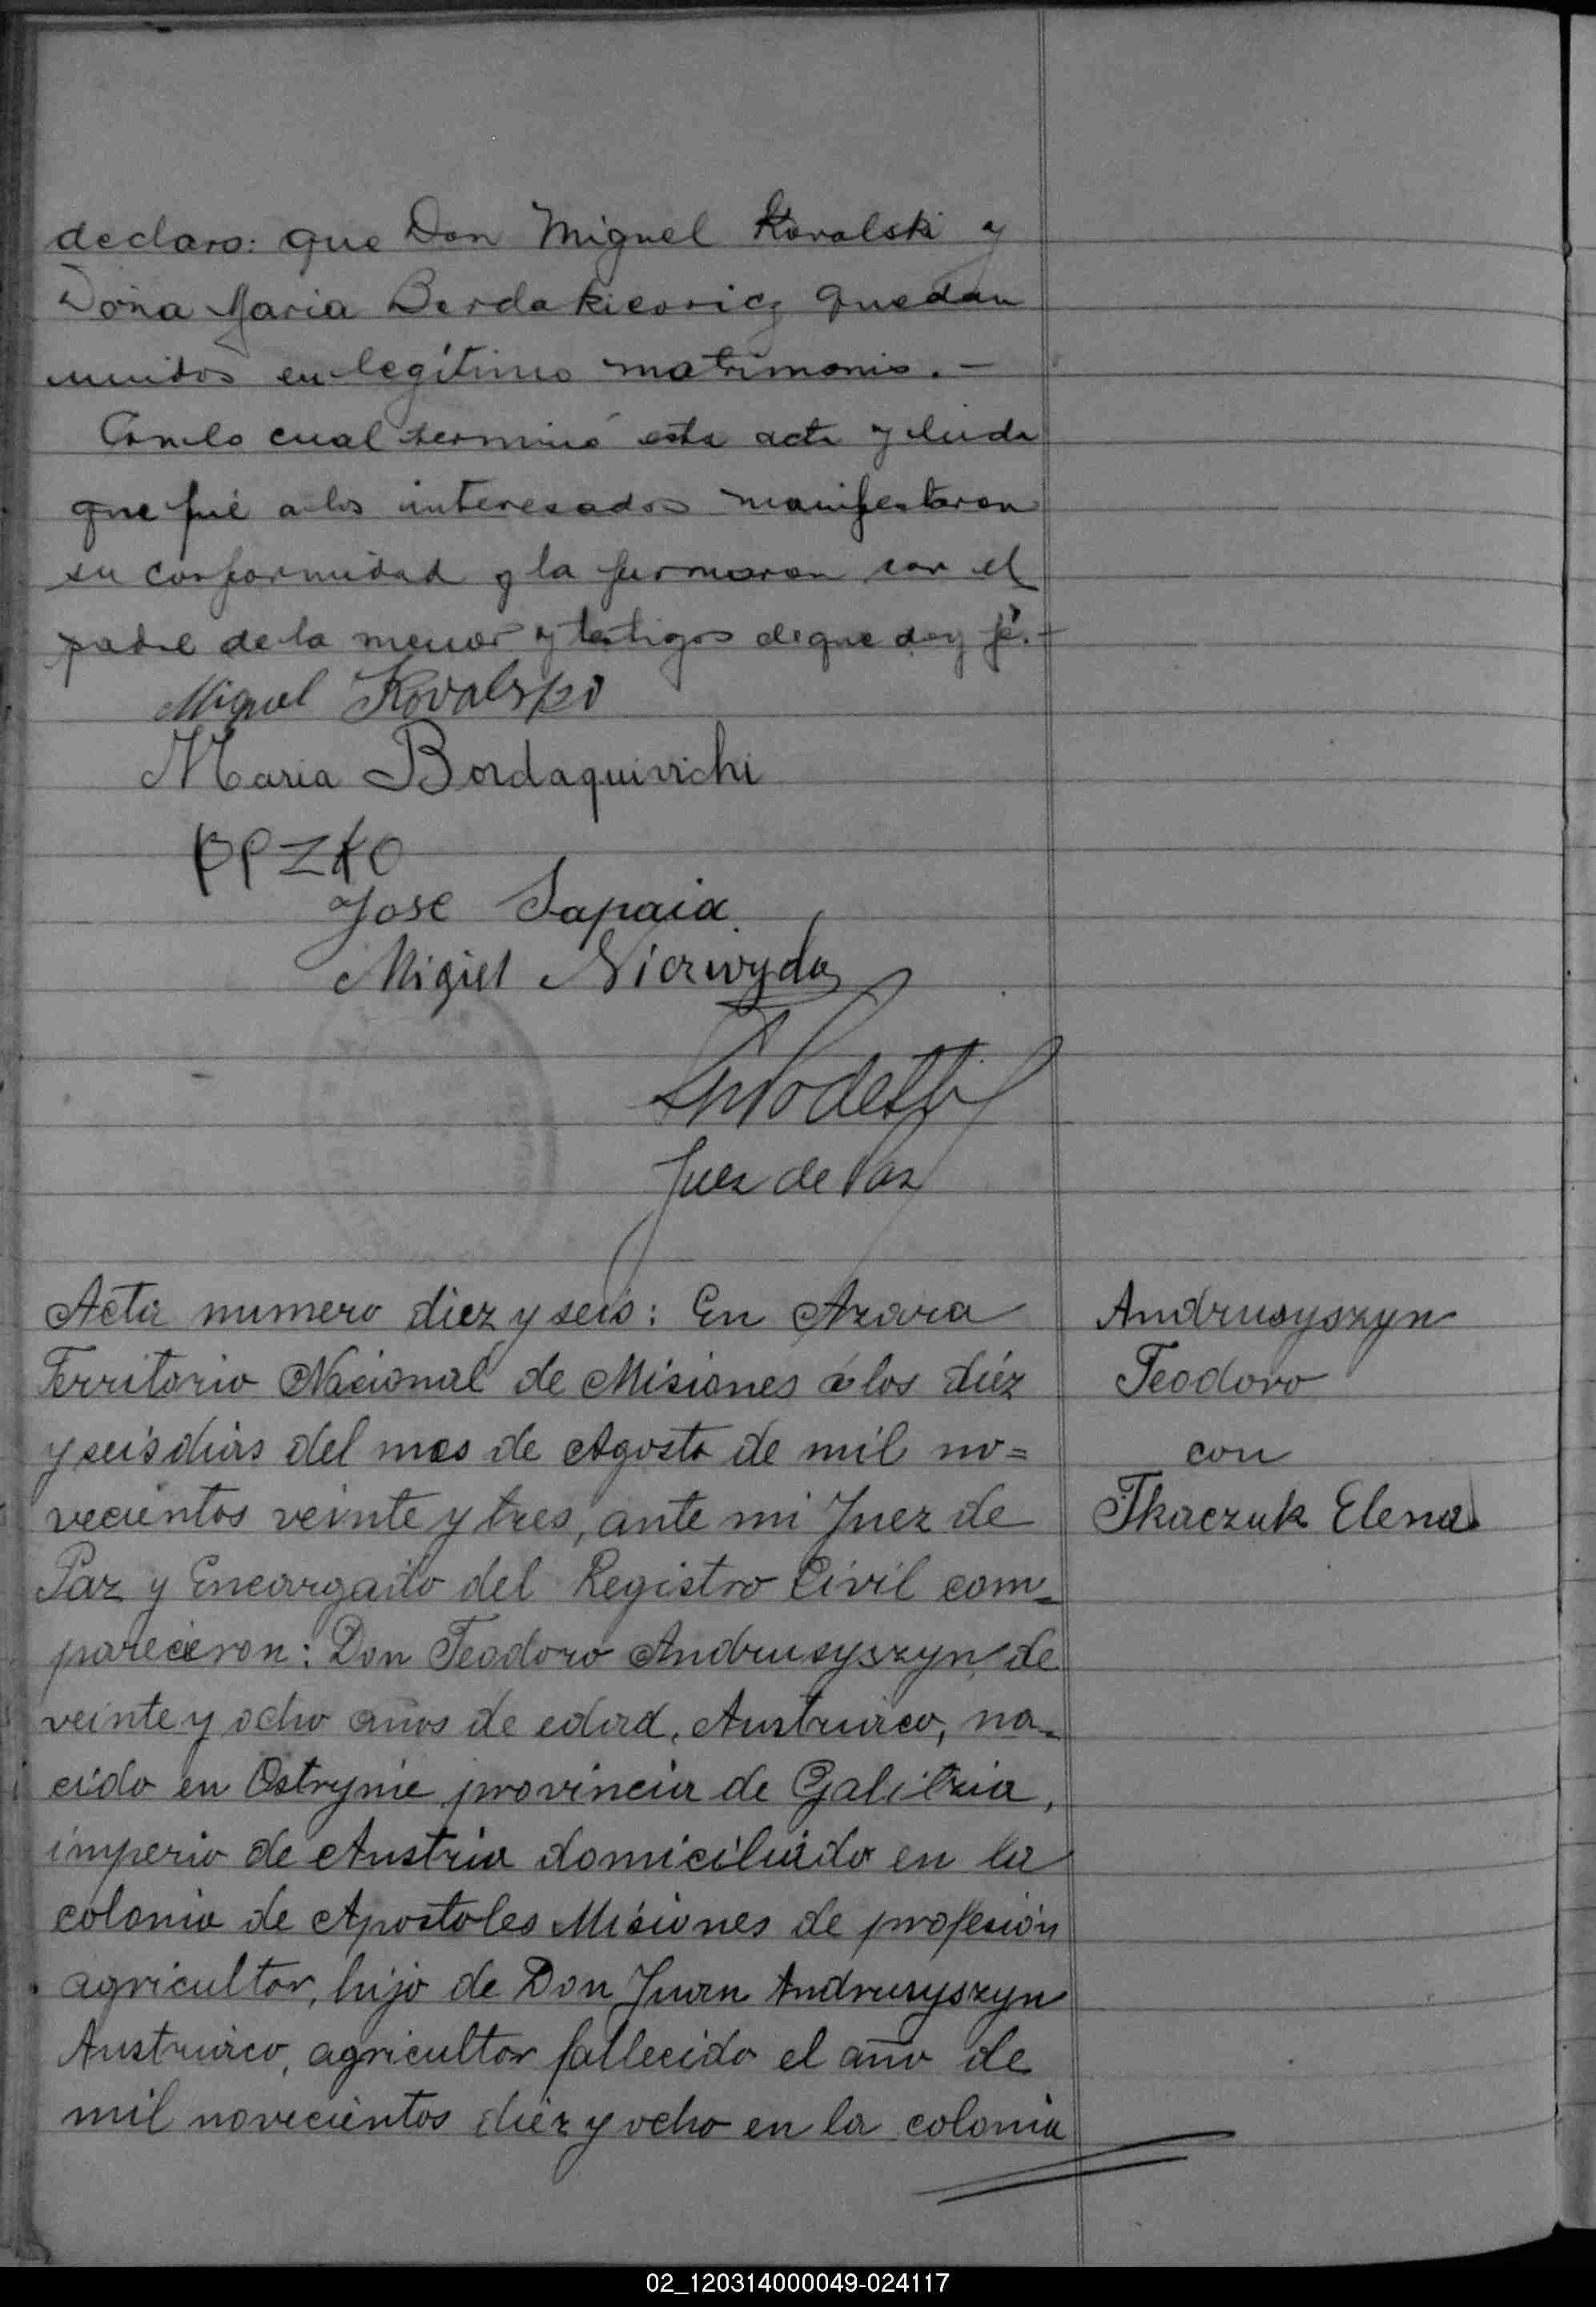 declaro: que Don Miguel Kovalski y
Doña Maria Berdakieovicz quedan
unidos en legítimo matrimonio. –
Con lo cual terminó esta acta y leida
que fué a los interesados manifestaron
su conformidad y la firmaron con el
padre de la menor y testigos de que doy fé. –
Miguel Kovalski
Maria Bordaquivichi
Jose Sapaia
Migiel
Juez de Paz
Acta numero diez y seis: En Azara
Territorio Nacional de Misiones á los diéz
y seis dias del mes de Agosto de mil no=
vecientos veinte y tres, ante mi Juez de
Paz y Encargado del Registro Civil com=
parecieron: Don Teodoro Andrusyszyn de
veinte y ocho años de edad, Austriaco, na=
cido en Ostrynie provincia de Galitzia,
imperio de Austria domiciliado en la
colonia de Apostoles Misiones de profesión
agricultor, hijo de Don Juan Andrusyszyn
Austriaco, agricultor fallecido el año de
mil novecientos diez y ocho en la colonia
Andrusyszyn
Teodoro
con
Tkaczuk Elena
02_120314000049-024117